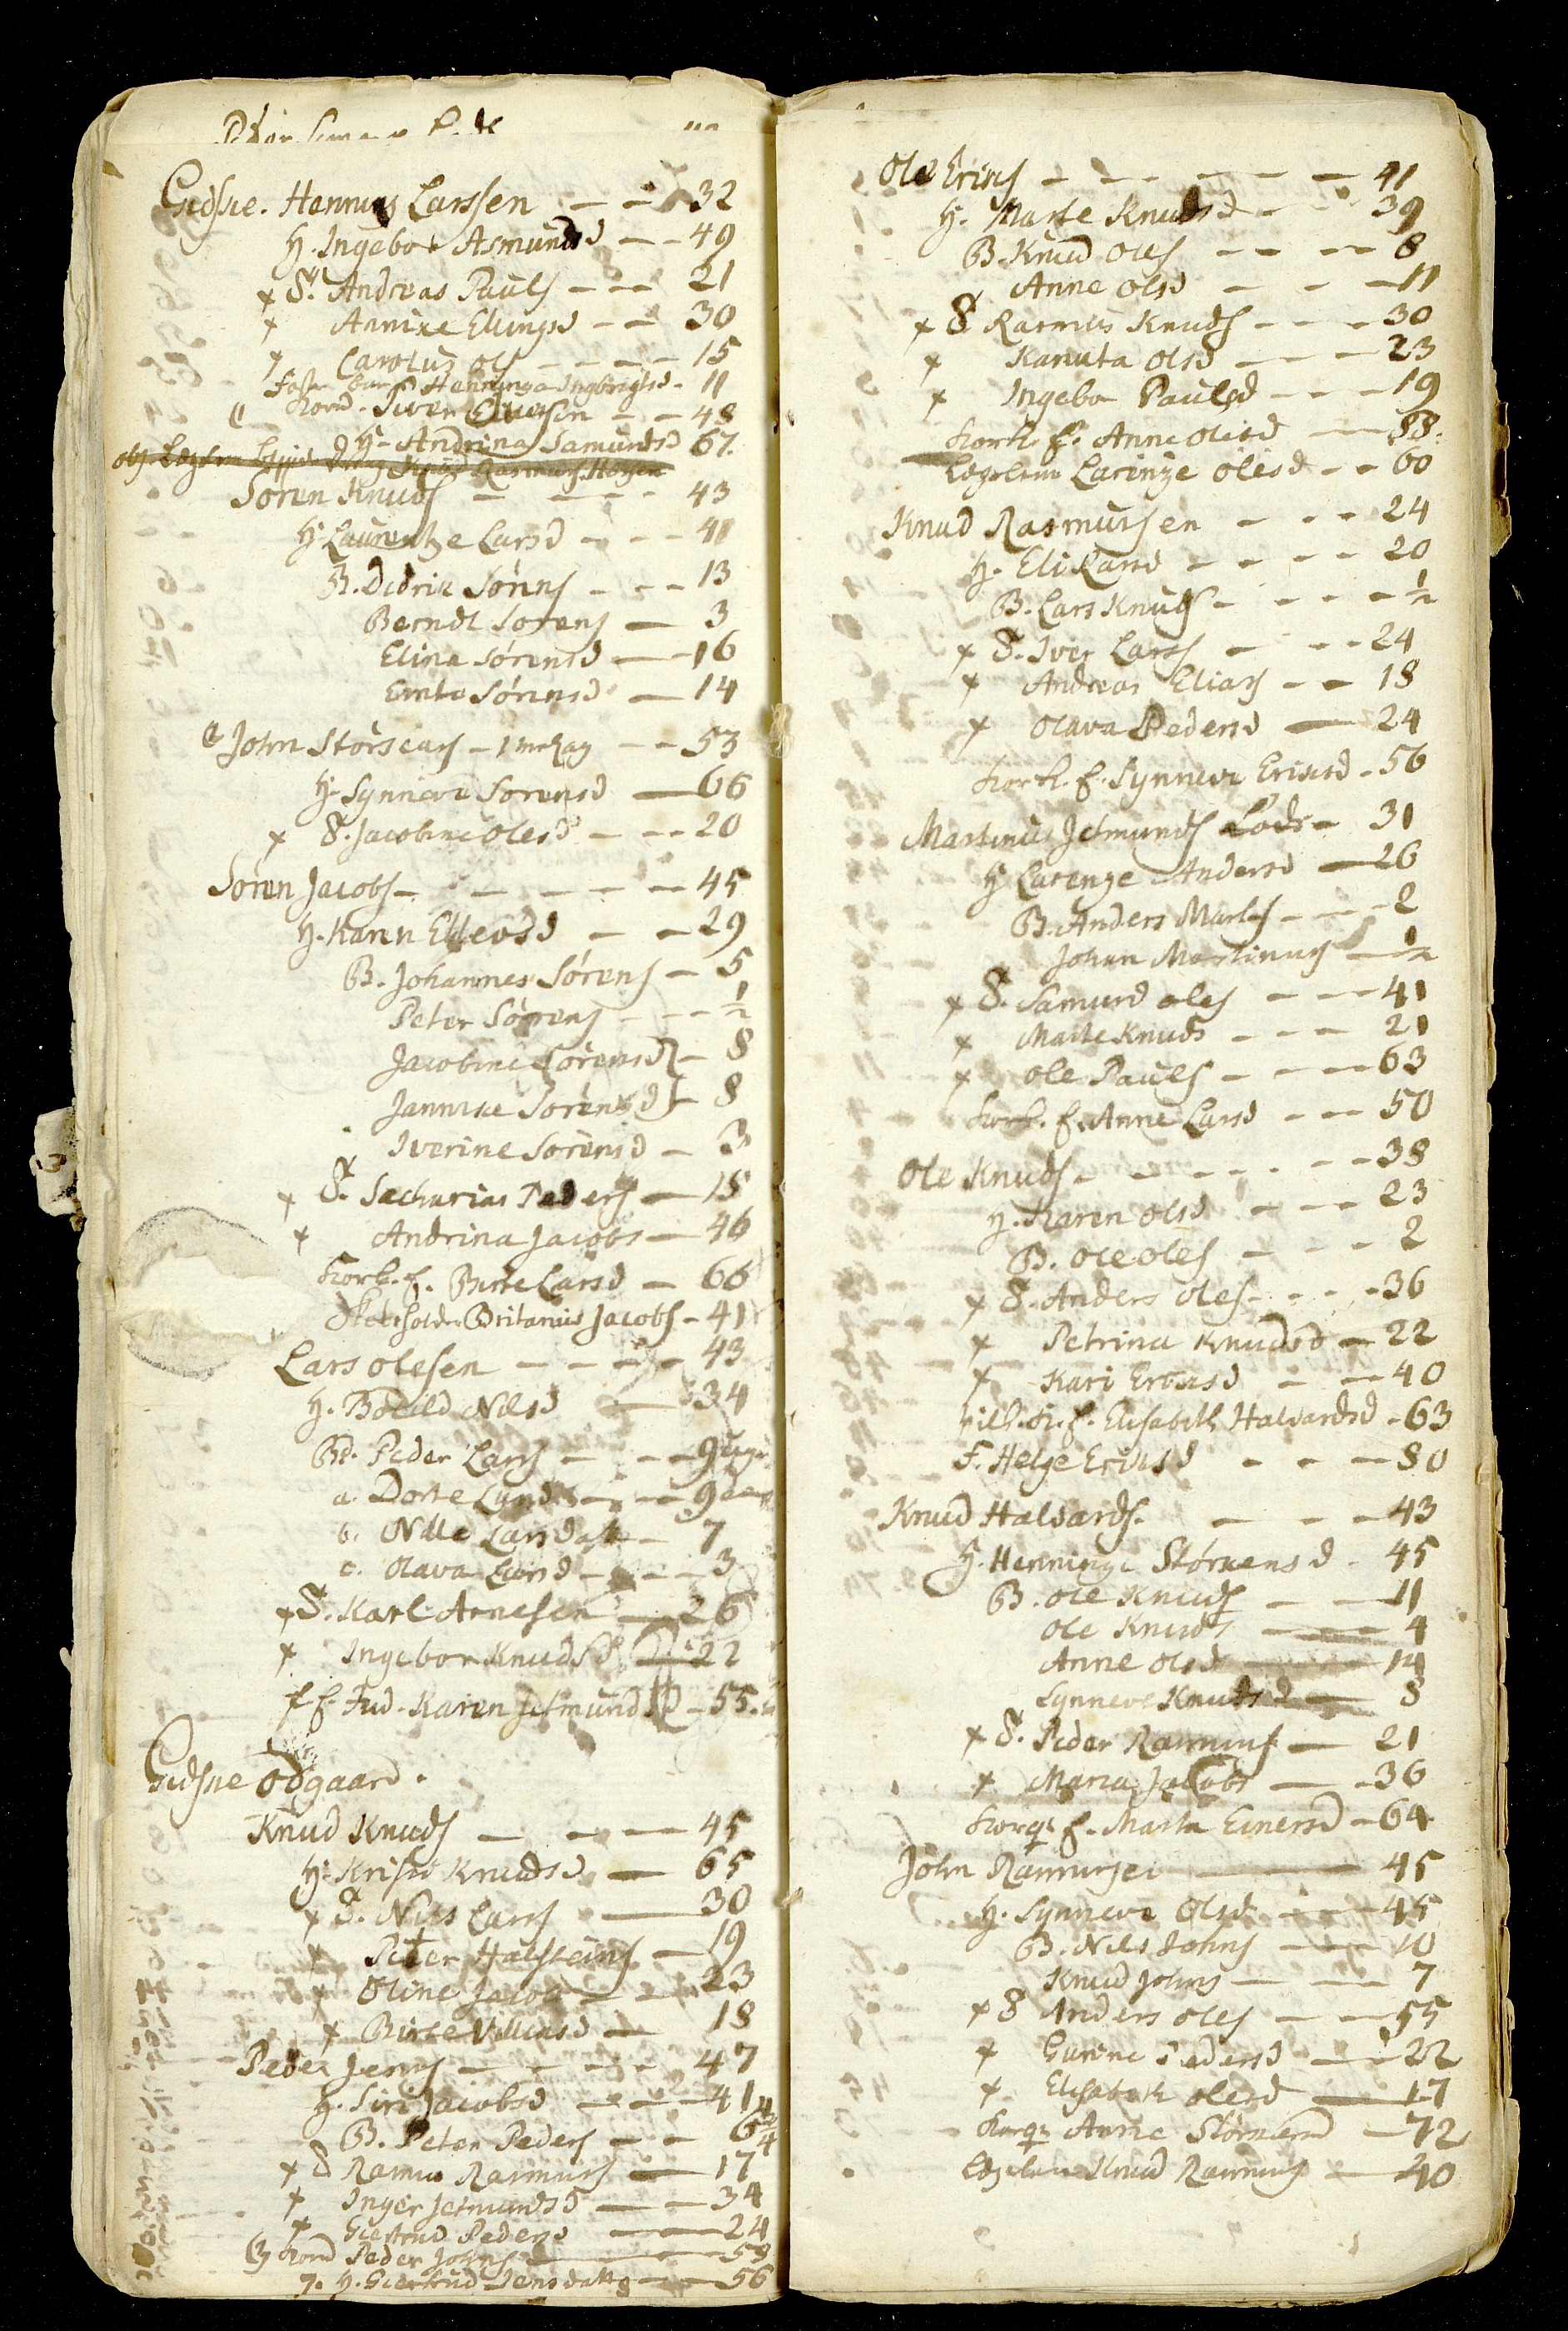 Gidsne. Hennings Larssen - - 32
H. Ingebor Asmundsd - - 49
x T. Andreas Pauls - - - 21
x Annike Ellingsd - - 30
x Carolus Ols - - - - 15
Foster barn Henninga Ingbrigtsd - 11
Kord. Siver Siversen - - 48
H. Andrina Samundsd 67.
Rasmus
Soren Knuds - - - - 43
H. Laurentze Larsd - - - 41
B. Didrik Sørens - - - 13
Berndt Sorens - 3
Elina Sørensd - - 16
Emte Sørensd - 14
John Storseas - 1 - - 53
H. Synneve Sorensd - 66
x T. Jacobine Olesd - - - 20
Soren Jacobs - - - - - 45
H. Karen Ellevsd - - 29
B. Johannes Sørens - 5
Peter Sørens - - - ½
Jacobine Sørensd - 8
Jannike Sorensd - 8
Iverine Sorensd - 3
x T. Sacharias Peders - 18
x Andrina Jacobs - 46
Kork. f. Birte Larsd - 66
Britanius Jacobs - 41
Lars Olesen - - - - 43
H. Boeild Nilsd - 34
Bd. Peder Larss - - - 9
a. Dorte Larsd - - - 9
b. Nille Larsdatt - 7
c. Olava Larsd - - - 3
x T. Karl Arnesen - 26
x Ingebor Knudsd 22
f. f. Fud. Karen Jetmundsd - 55.
Gidsne Odgaard.
Knud Knuds - - - 45
H. Kristi Knudsd - 65
x T. Nils Larss - 30
x Peter Halsteins - 19
x Oline Jacobs - - 23
x Birte Villumsd - 18
Peder Jenss - - - - 47
H. Siri Jacobsd - - - 41
B. Peter Peders - - 6
x T Rasmus Rasmuss - 17
x Inger Jetmundsd - - 34
x Giertrud Pedersd - - 24
Kord Peder Johns - - 59
7. H. Giertrud Jensdatt - - 56
Ole Eriks - - - - - - 41
H. Marte Knudsd - - 39
B. Knud Oles - - - - 8
Anne Olsd - - - 11
x T Rasmus Knuds - - - 30
x Kanuta Olsd - - - 23
x Ingebor Paulsd - - - 19
Kork. f. Anne Olesd - 88.
Legslem Larinze Olesd - - 60
Knud Rasmussen - - - 24
H. Eli Larsd - - - - 20
B. Lars Knuds - - - - ½
x T. Iver Larss - - - 24
x Andreas Elias - - 18
x Olava Pedersd - 24
Kork. f. Synneve Eriksd - 56
Martinus Jetmunds Lods - 31
H. Larenze Andersd - 26
B. Anders Marts - - - 2
Johan Martinus - ½
x T. Samund Oles - - - 41
x Marte Knuds - - - 21
x Ole Pauls - - - 63
Kork. f. Anne Larsd - - 50
Ole Knuds - - - - - - 38
H. Karen Olsd - - - 23
B. Ole Oles - - - - 2
x T. Anders Oles - - - - 36
x Petrina Knudsd - 22
x Kari Eriksd - - - 40
f. Elisabeth Halvardsd - 63
F. Helge Eriksd - - - 80
Knud Halvards. - - - 43
H. Henninze Størkensd - 45
B. Ole Knuds - - 11
Ole Knuds - 4
Anne Olsd - 14
Synneve Knudsd - 8
x T. Peder Rasmus - 21
x Maria Jacobs - - 36
f. Marta Einersd - 64
John Rasmussen - 45
H. Synneve Olsd - - - 45
B. Nils Johns - - - 10
Knud Johns - - - 7
x T Anders Oles - - - 55
x Gurine Pedersd - - 22
x Elisabeth Olesd - 17
Anne Størkersd - 72
Knud Rasmus - 40